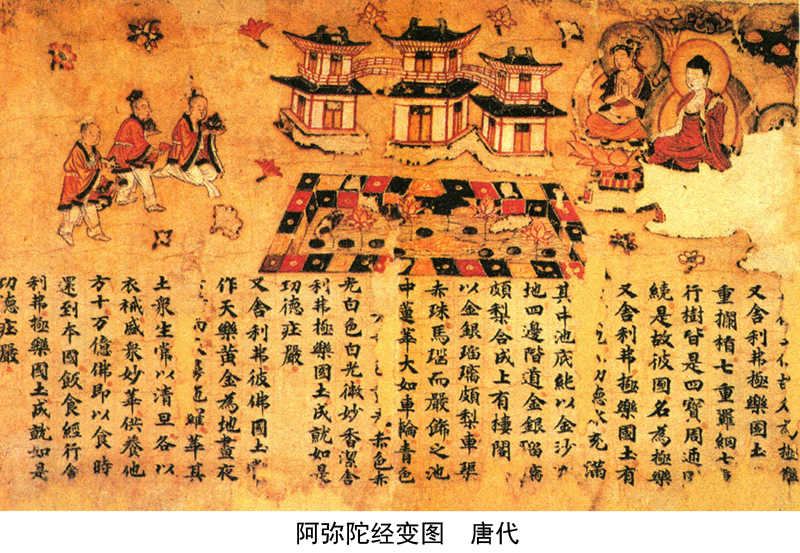 極樂
又舍利弗極樂國土
重欄楯七重羅網七
行樹皆是四寶周迊
繞是故彼國名為極樂
又舍利弗極樂國土有
充滿
其中池底純以金沙
地四邊階道金銀瑠璃
頗梨合成上有樓閣
以金銀瑠璃頗梨車璖
赤珠馬瑙而嚴飾之池
中蓮華大如車輪青色
赤色赤
光白色白光微妙香潔舍
利弗極樂國土成就如是
功德莊嚴
又舍利弗彼佛國土常
作天樂黃金為地晝夜
而羅華其
土眾生常以清旦各以
衣祴盛眾妙華供養他
方十万億佛即以食時
還到本國飯食經行舍
利弗極樂國土成就如是
功德莊嚴
阿弥陀经变图 唐代